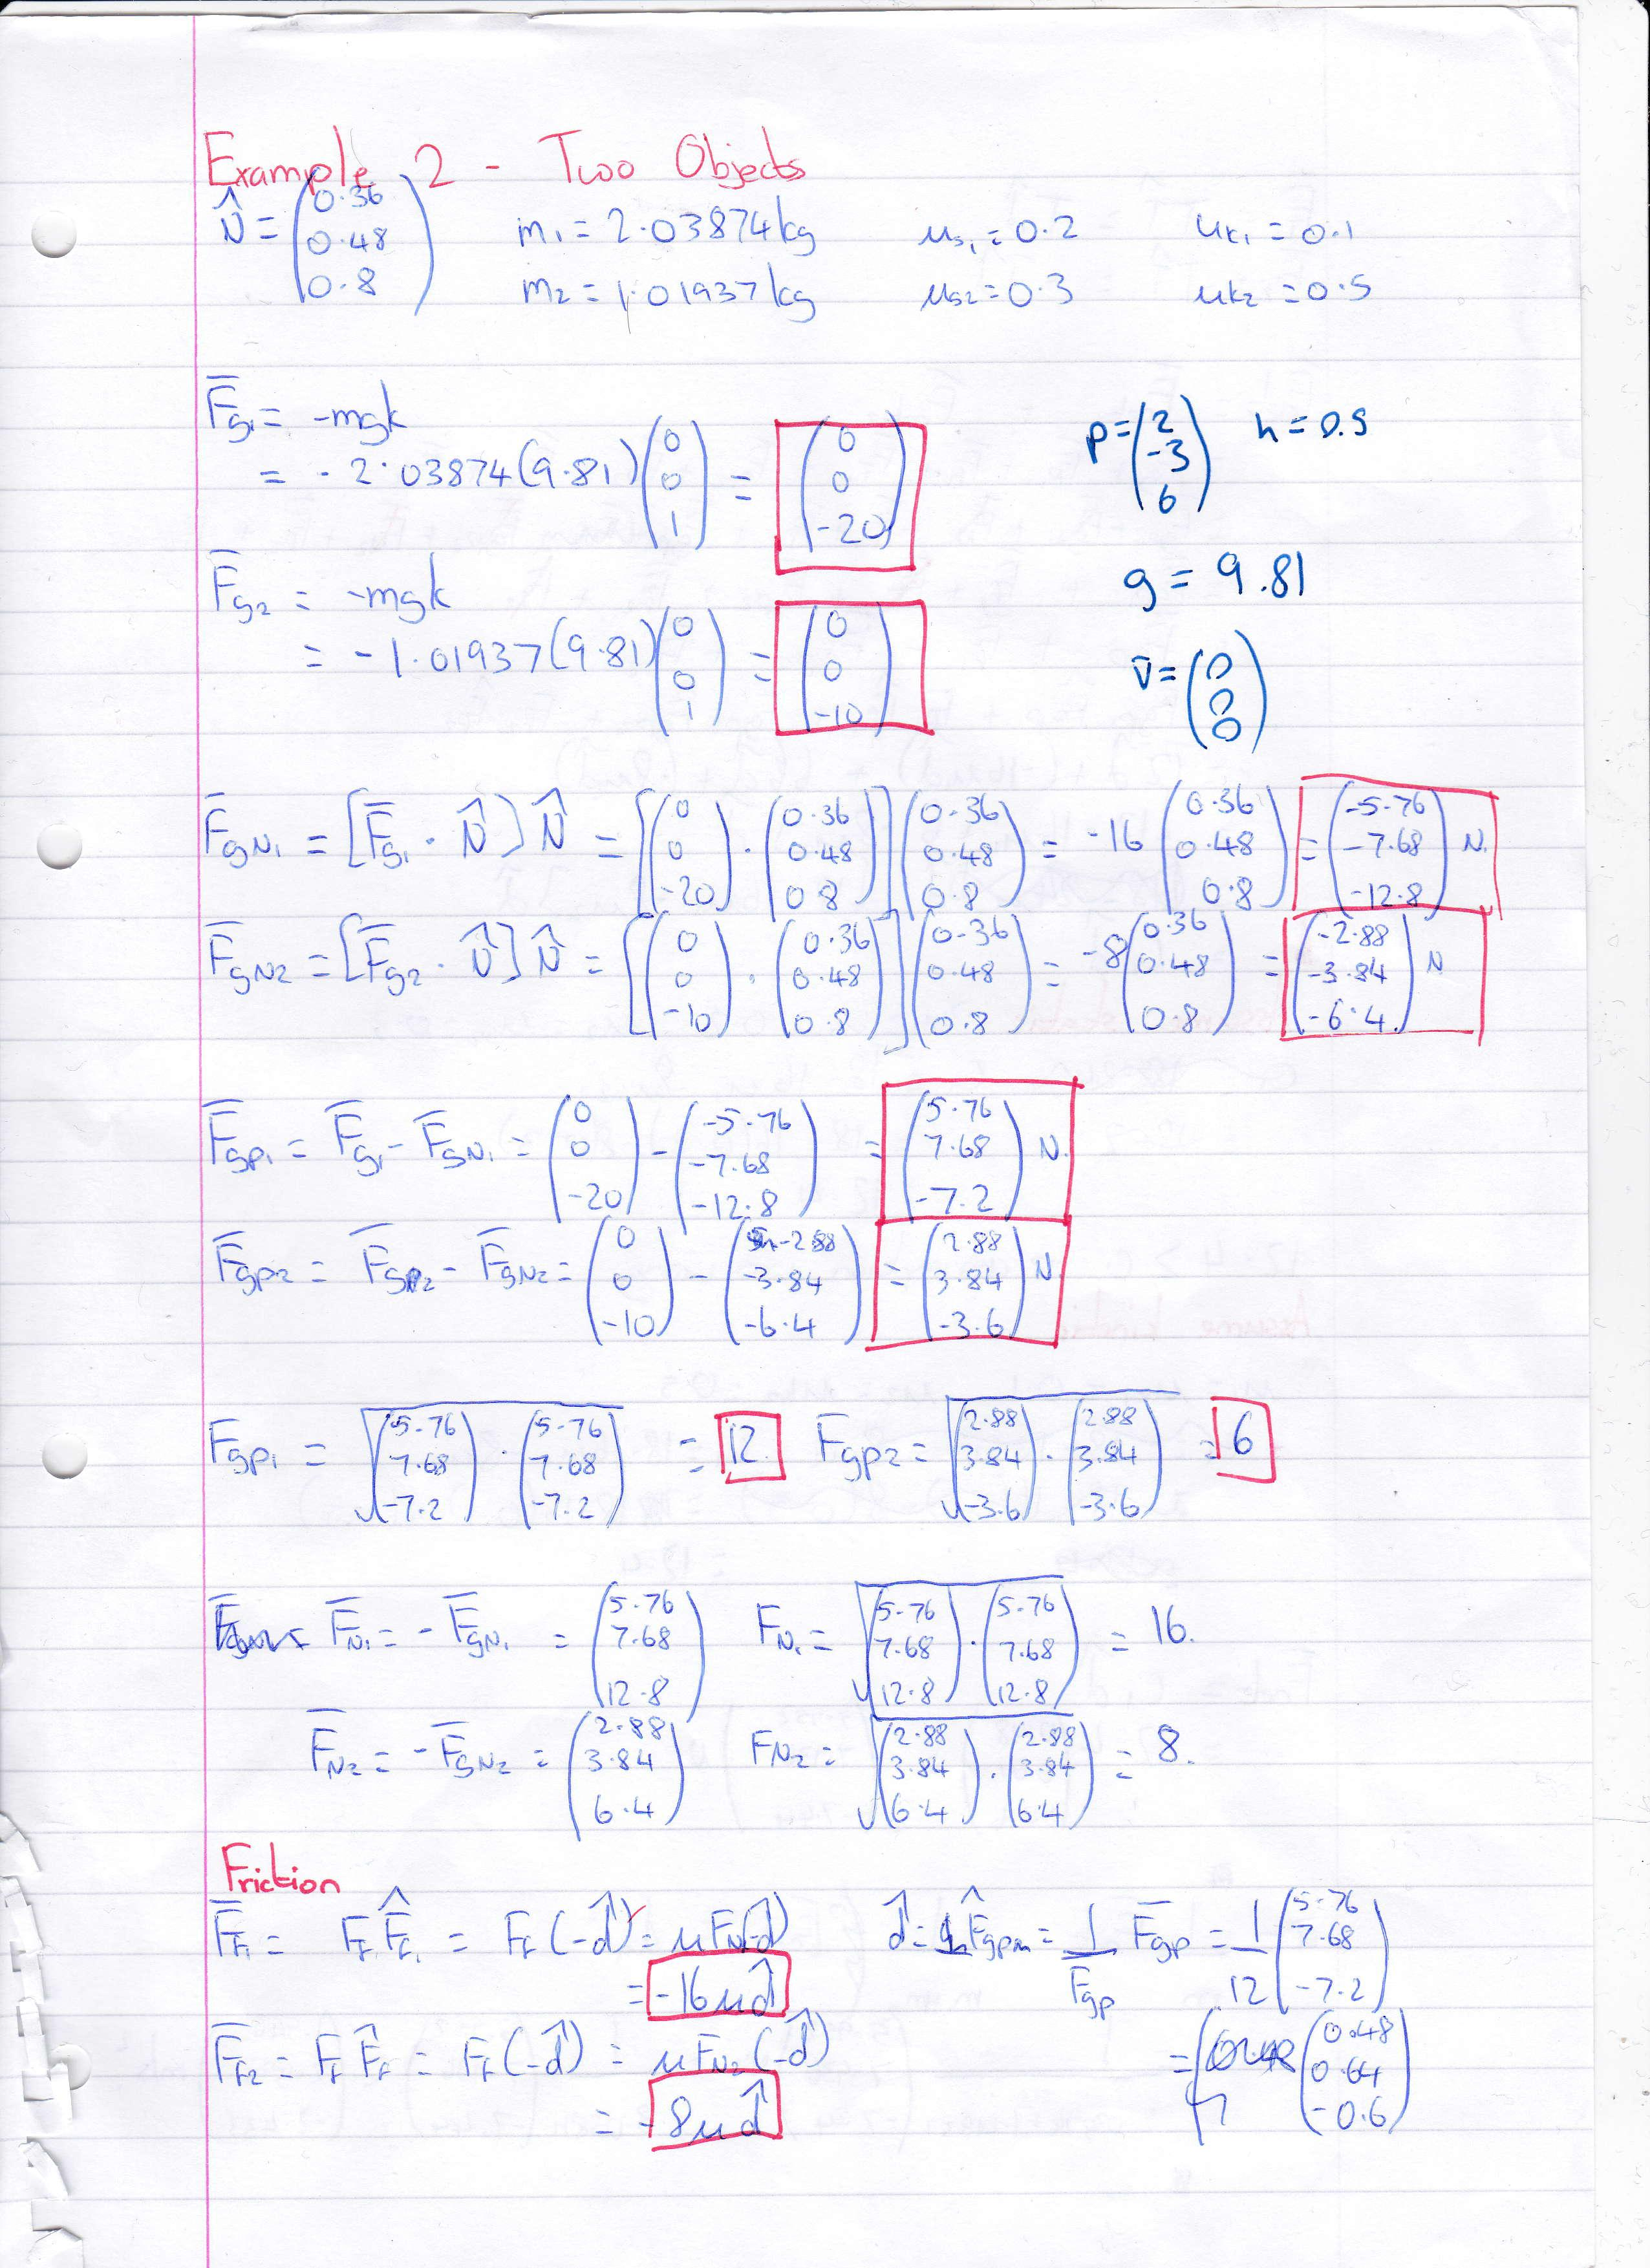 Example 2 - Two Objects
N̂ = (0.36 0.48 0.8) m₁ = 2.03874kg μs₁ = 0.2 μk₁ = 0.1
m₂ = 1.01937kg μs₂ = 0.3 μk₂ = 0.5
F̄g₁ = -mgk
= -2.03874(9.81)(0 0 1) = (0 0 -20)
p = (2 -3 6) h = 0.5
F̄g₂ = -mgk
= -1.01937(9.81)(0 0 1) = (0 0 -10)
g = 9.81
v̄ = (0 0 0)
F̄gN₁ = [F̄g₁ · N̂]N̂ = [(0 0 -20) · (0.36 0.48 0.8)](0.36 0.48 0.8) = -16(0.36 0.48 0.8) = (-5.76 -7.68 -12.8) N.
F̄gN₂ = [F̄g₂ · N̂]N̂ = [(0 0 -10) · (0.36 0.48 0.8)](0.36 0.48 0.8) = -8(0.36 0.48 0.8) = (-2.88 -3.84 -6.4) N
F̄gp₁ = F̄g₁ - F̄gN₁ = (0 0 -20) - (-5.76 -7.68 -12.8) = (5.76 7.68 -7.2) N.
F̄gp₂ = F̄gp₂ - F̄gN₂ = (0 0 -10) - (-2.88 -3.84 -6.4) = (2.88 3.84 -3.6) N.
Fgp₁ = √(5.76 7.68 -7.2) · (5.76 7.68 -7.2) = 12. Fgp₂ = √(2.88 3.84 -3.6) · (2.88 3.84 -3.6) = 6
F̄N₁ = -F̄gN₁ = (5.76 7.68 12.8) FN₁ = √(5.76 7.68 12.8) · (5.76 7.68 12.8) = 16.
F̄N₂ = -F̄gN₂ = (2.88 3.84 6.4) FN₂ = √(2.88 3.84 6.4) · (2.88 3.84 6.4) = 8.
Friction
F̄f₁ = Ff F̂f₁ = Ff(-d̂) = μFN(-d̂) d̂ = F̂gp = 1/Fgp F̄gp = 1/12 (5.76 7.68 -7.2)
= -16μd̂
= (0.48 0.64 -0.6)
F̄f₂ = Ff F̂f = Ff(-d̂) = μFN₂(-d̂)
= -8μd̂